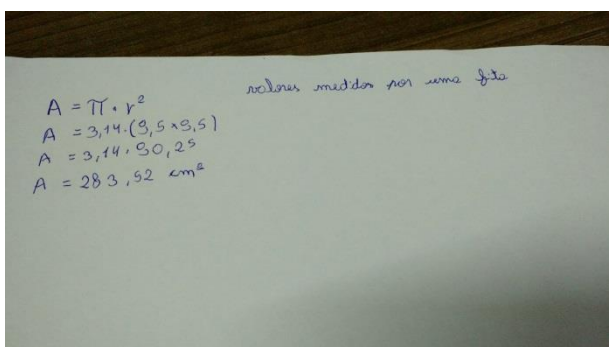 valores medidos por uma fita
A = π . r²
A = 3,14 . (9,5 × 9,5)
A = 3,14 . 90,25
A = 283,52 cm²